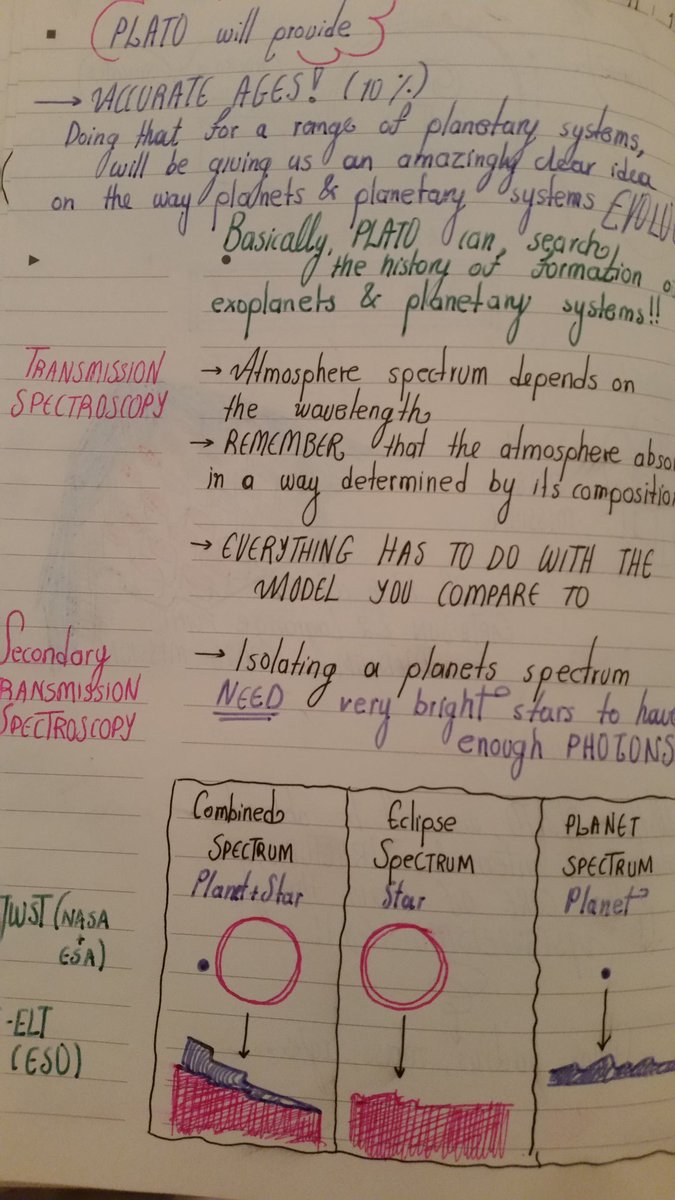 PLATO will provide
→ ACCURATE AGES! (10%)
Doing that for a range of planetary systems,
will be giving us an amazingly clear idea
on the way planets & planetary systems
Basically, PLATO can search
the history of formation
exoplanets & planetary systems!!
TRANSMISSION
SPECTROSCOPY
→ Atmosphere spectrum depends on
the wavelength
→ REMEMBER that the atmosphere
in a way determined by its
→ EVERYTHING HAS TO DO WITH THE
MODEL YOU COMPARE TO
Secondary
RANSMISSION
SPECTROSCOPY
→ Isolating a planets spectrum
NEED very bright stars to
enough PHOTONS
Combined
SPECTRUM
Planet+Star
Eclipse
SPECTRUM
Star
PLANET
SPECTRUM
Planet
JWST (NASA
+
ESA)
-ELT
(ESO)